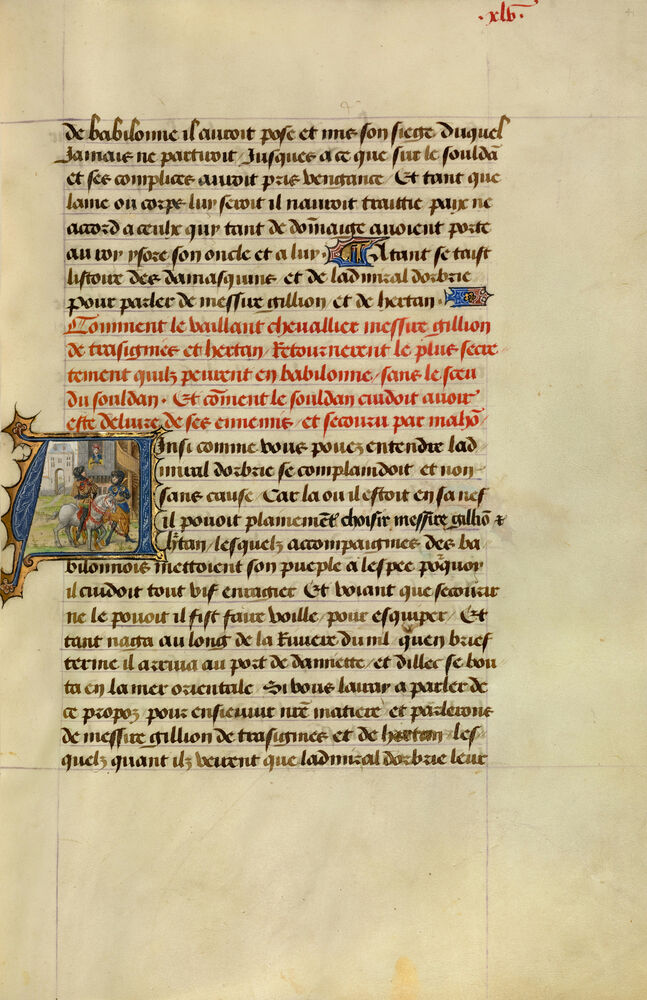 .xlv.
de babilonne il auroit pose et mis son siege duquel
Jamais ne partiroit / Jusques a ce que sur le souldā
et ses complices auroit pris vengance / Et tant que
lame ou corps luy seroit il nauroit traittie paix ne
accord a ceulx quy tant de dōmaige auoient porte
au roy ysore son oncle et a luy. Atant se taist
listoire des damasquins et de ladmiral dorbrie
pour parler de messire gillion et de hertan.
Comment le vaillant chevallier messire gillion
de trasignies et hertan / Retournerent le plus secre
tement quilz peurent en babilonne / sans le sceu
du souldan. Et cōment le souldan cuidoit auoir
este deliure de ses ennemis et secouru par mahō
Ainsi comme vous pouez entendre lad
miral dorbrie se complaindoit et non
sans cause / Car la ou il estoit en sa nef
il pouoit plainemēt choisir messire gilliō &
hertan / lesquelz accompaignies des ba
bilonnois mettoient son pueple a lespee porquoy
il cuidoit tout vif enragier Et voiant que secourir
ne le pouoit il fist faire voille / pour esquiper / Et
tant naga au long de la Riuiere du nil quen brief
terme il arriua au port de damiette / et dillec se bou
ta en la mer orientale / Si vous lairay a parler de
ce propoz pour ensieuuir nr̄e matiere et parlerons
de messire gillion de trasignies et de hertan / les
quelz quant ilz veirent que ladmiral dorbrie leur